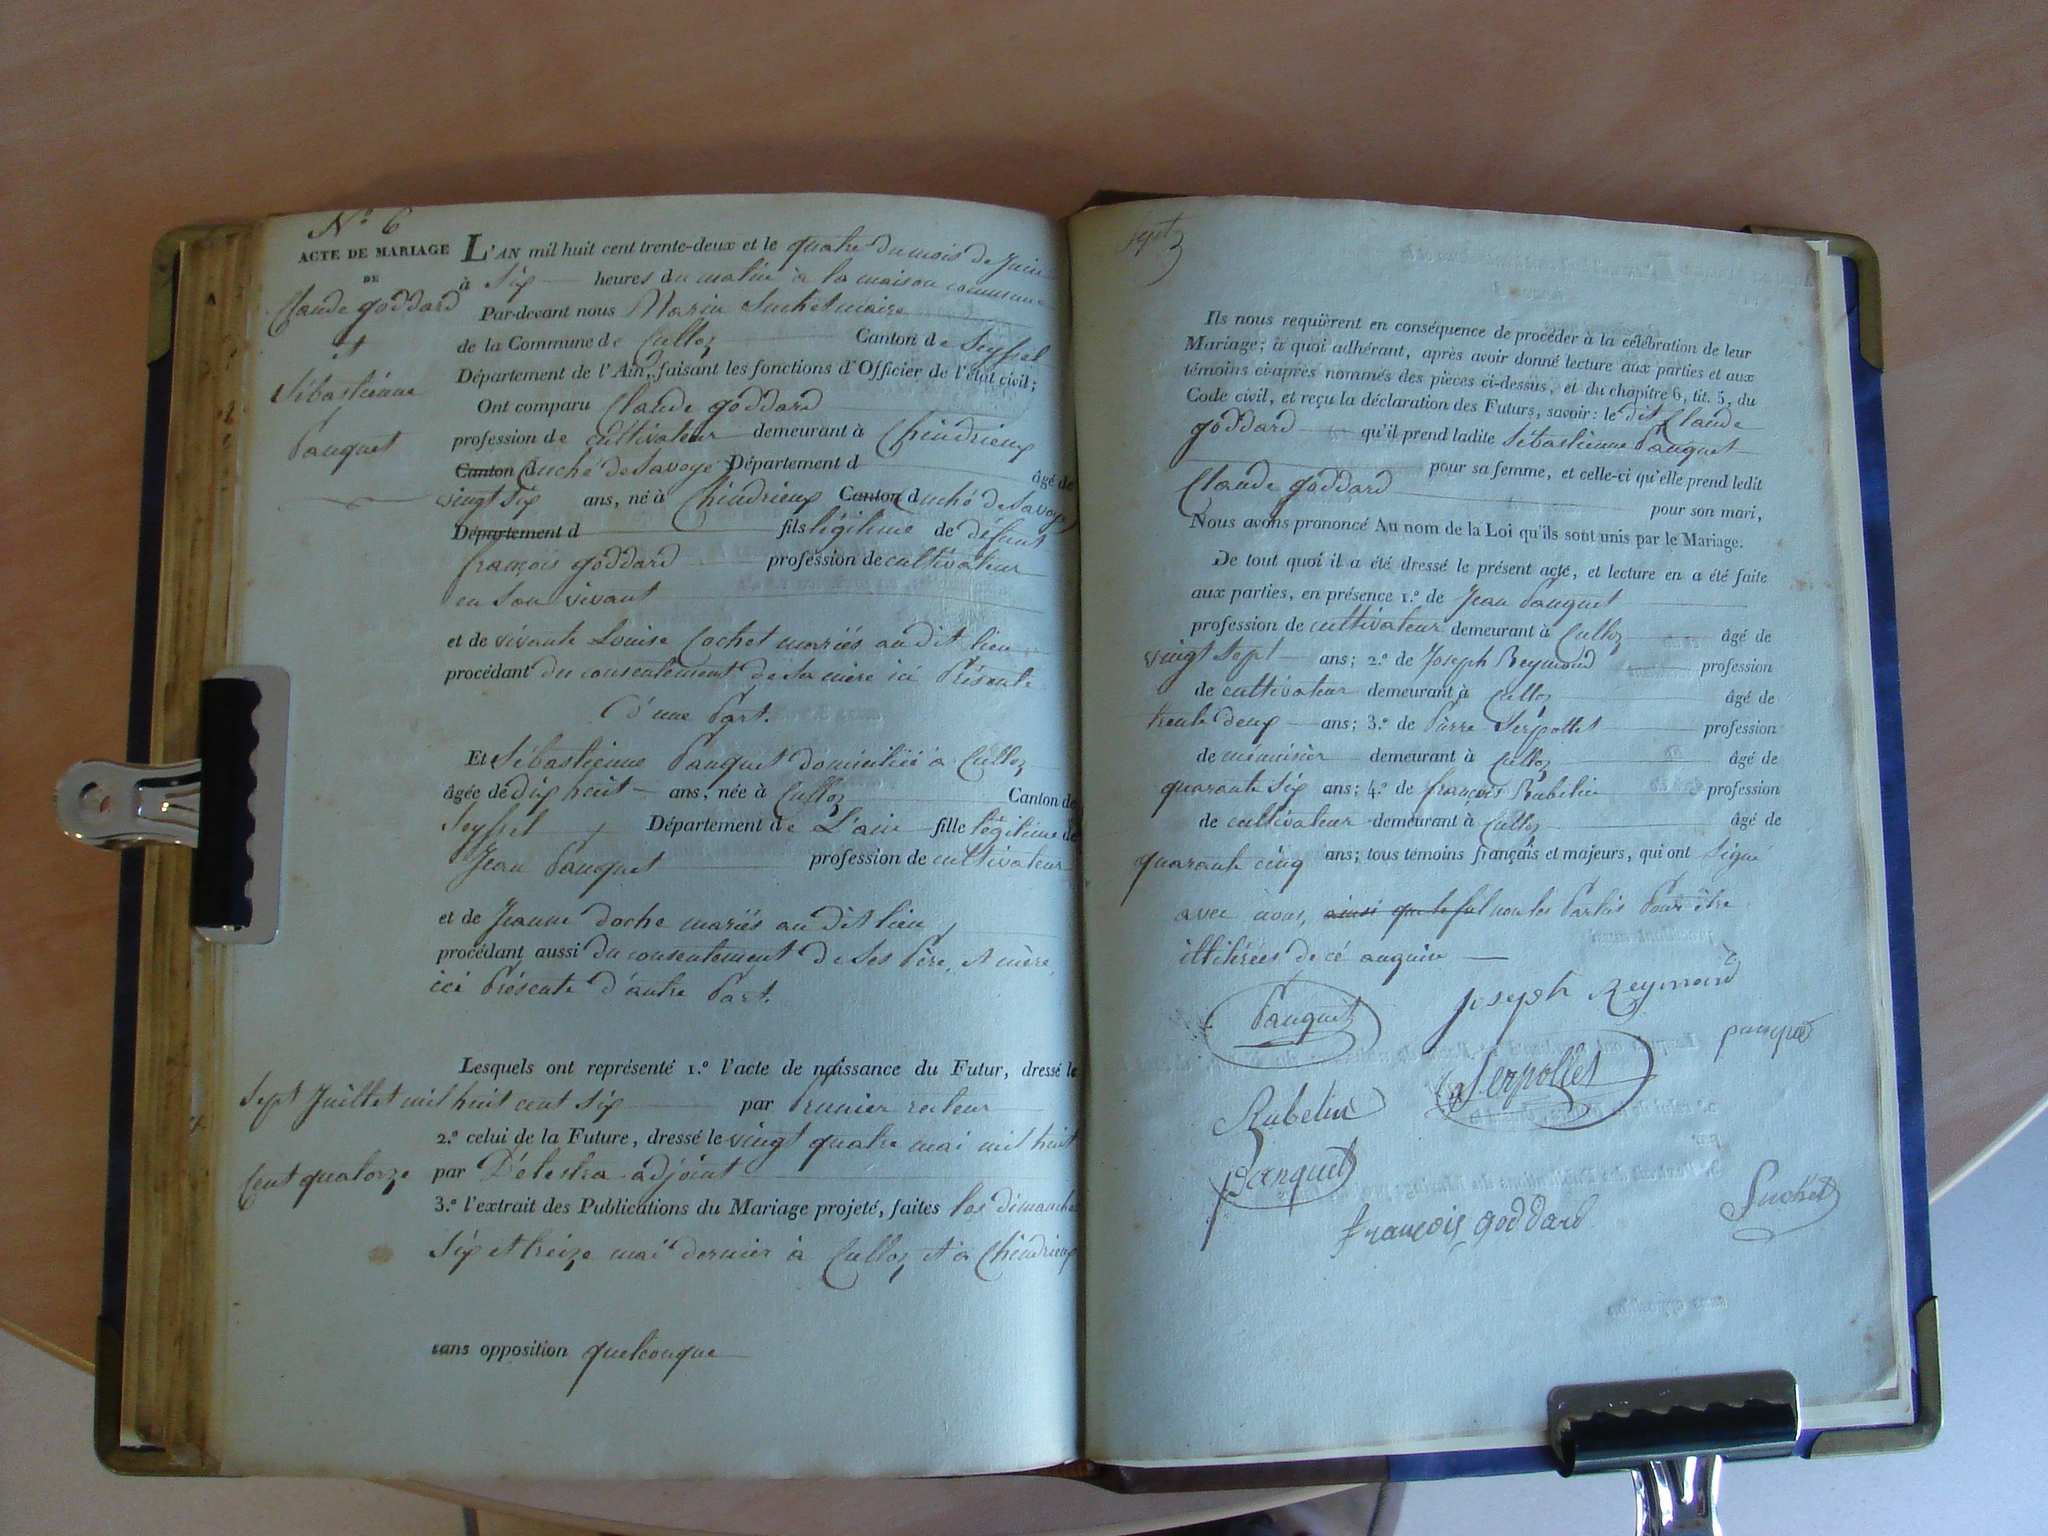 N.° 6
ACTE DE MARIAGE
DE
Claude goddard
et
Sébastienne
Pauquet
L'AN mil huit cent trente-deux et le quatre du mois de Juin
à Six heures du matin à la maison commune
Par-devant nous Marin Suchet maire
de la Commune de Culloz Canton de Seyssel
Département de l'Ain, faisant les fonctions d'Officier de l'état civil;
Ont comparu Claude goddard
profession de cultivateur demeurant à Chindrieux
Canton duché de Savoye Département d âgé de
vingt six ans, né à Chindrieux Canton duché de Savoye
Département d fils légitime de défunt
françois goddard profession de cultivateur
en Son vivant
et de vivante Louise Cochet mariés au dit lieu
procédant du consentement de Sa mère ici Présente
D'une Part.
Et Sébastienne Pauquet domiciliée à Culloz
âgée de dix huit ans, née à Culloz Canton de
Seyssel Département de L'ain fille légitime de
Jean Pauquet profession de cultivateur
et de Jeanne doche mariés au dit lieu
procédant aussi du consentement de Ses Père et mère,
ici Présente d'autre Part.
Lesquels ont représenté 1.° l'acte de naissance du Futur, dressé le
Sept Juillet mil huit cent six par Prunier recteur
2.° celui de la Future, dressé le vingt quatre mai mil huit
Cent quatorze par Délestra adjoint
3.° l'extrait des Publications du Mariage projeté, faites les dimanches
Six et treize mai dernier à Culloz et à Chindrieux
sans opposition quelconque
Sept
Ils nous requièrent en conséquence de procéder à la célébration de leur
Mariage; à quoi adhérant, après avoir donné lecture aux parties et aux
témoins ci-après nommés des pièces ci-dessus, et du chapitre 6, tit. 5, du
Code civil, et reçu la déclaration des Futurs, savoir: le dit Claude
goddard qu'il prend ladite Sébastienne Pauquet
pour sa femme, et celle-ci qu'elle prend ledit
Claude goddard pour son mari,
Nous avons prononcé Au nom de la Loi qu'ils sont unis par le Mariage.
De tout quoi il a été dressé le présent acte, et lecture en a été faite
aux parties, en présence 1.° de Jean Pauquet
profession de cultivateur demeurant à Culloz âgé de
vingt Sept ans; 2.° de Joseph Reymond profession
de cultivateur demeurant à Culloz âgé de
trente deux ans; 3.° de Pierre Serpollet profession
de ménuisier demeurant à Culloz âgé de
quarante Six ans; 4.° de françois Rubelin profession
de cultivateur demeurant à Culloz âgé de
quarante cinq ans; tous témoins français et majeurs, qui ont Signé
avec nous, ainsi que le fut non les Parties Pour être
illitérées de ce enquis
Pauquet
Joseph Reymond
pauquet
Rubelin
Serpollet
Pauquet
Suchet
françois goddard